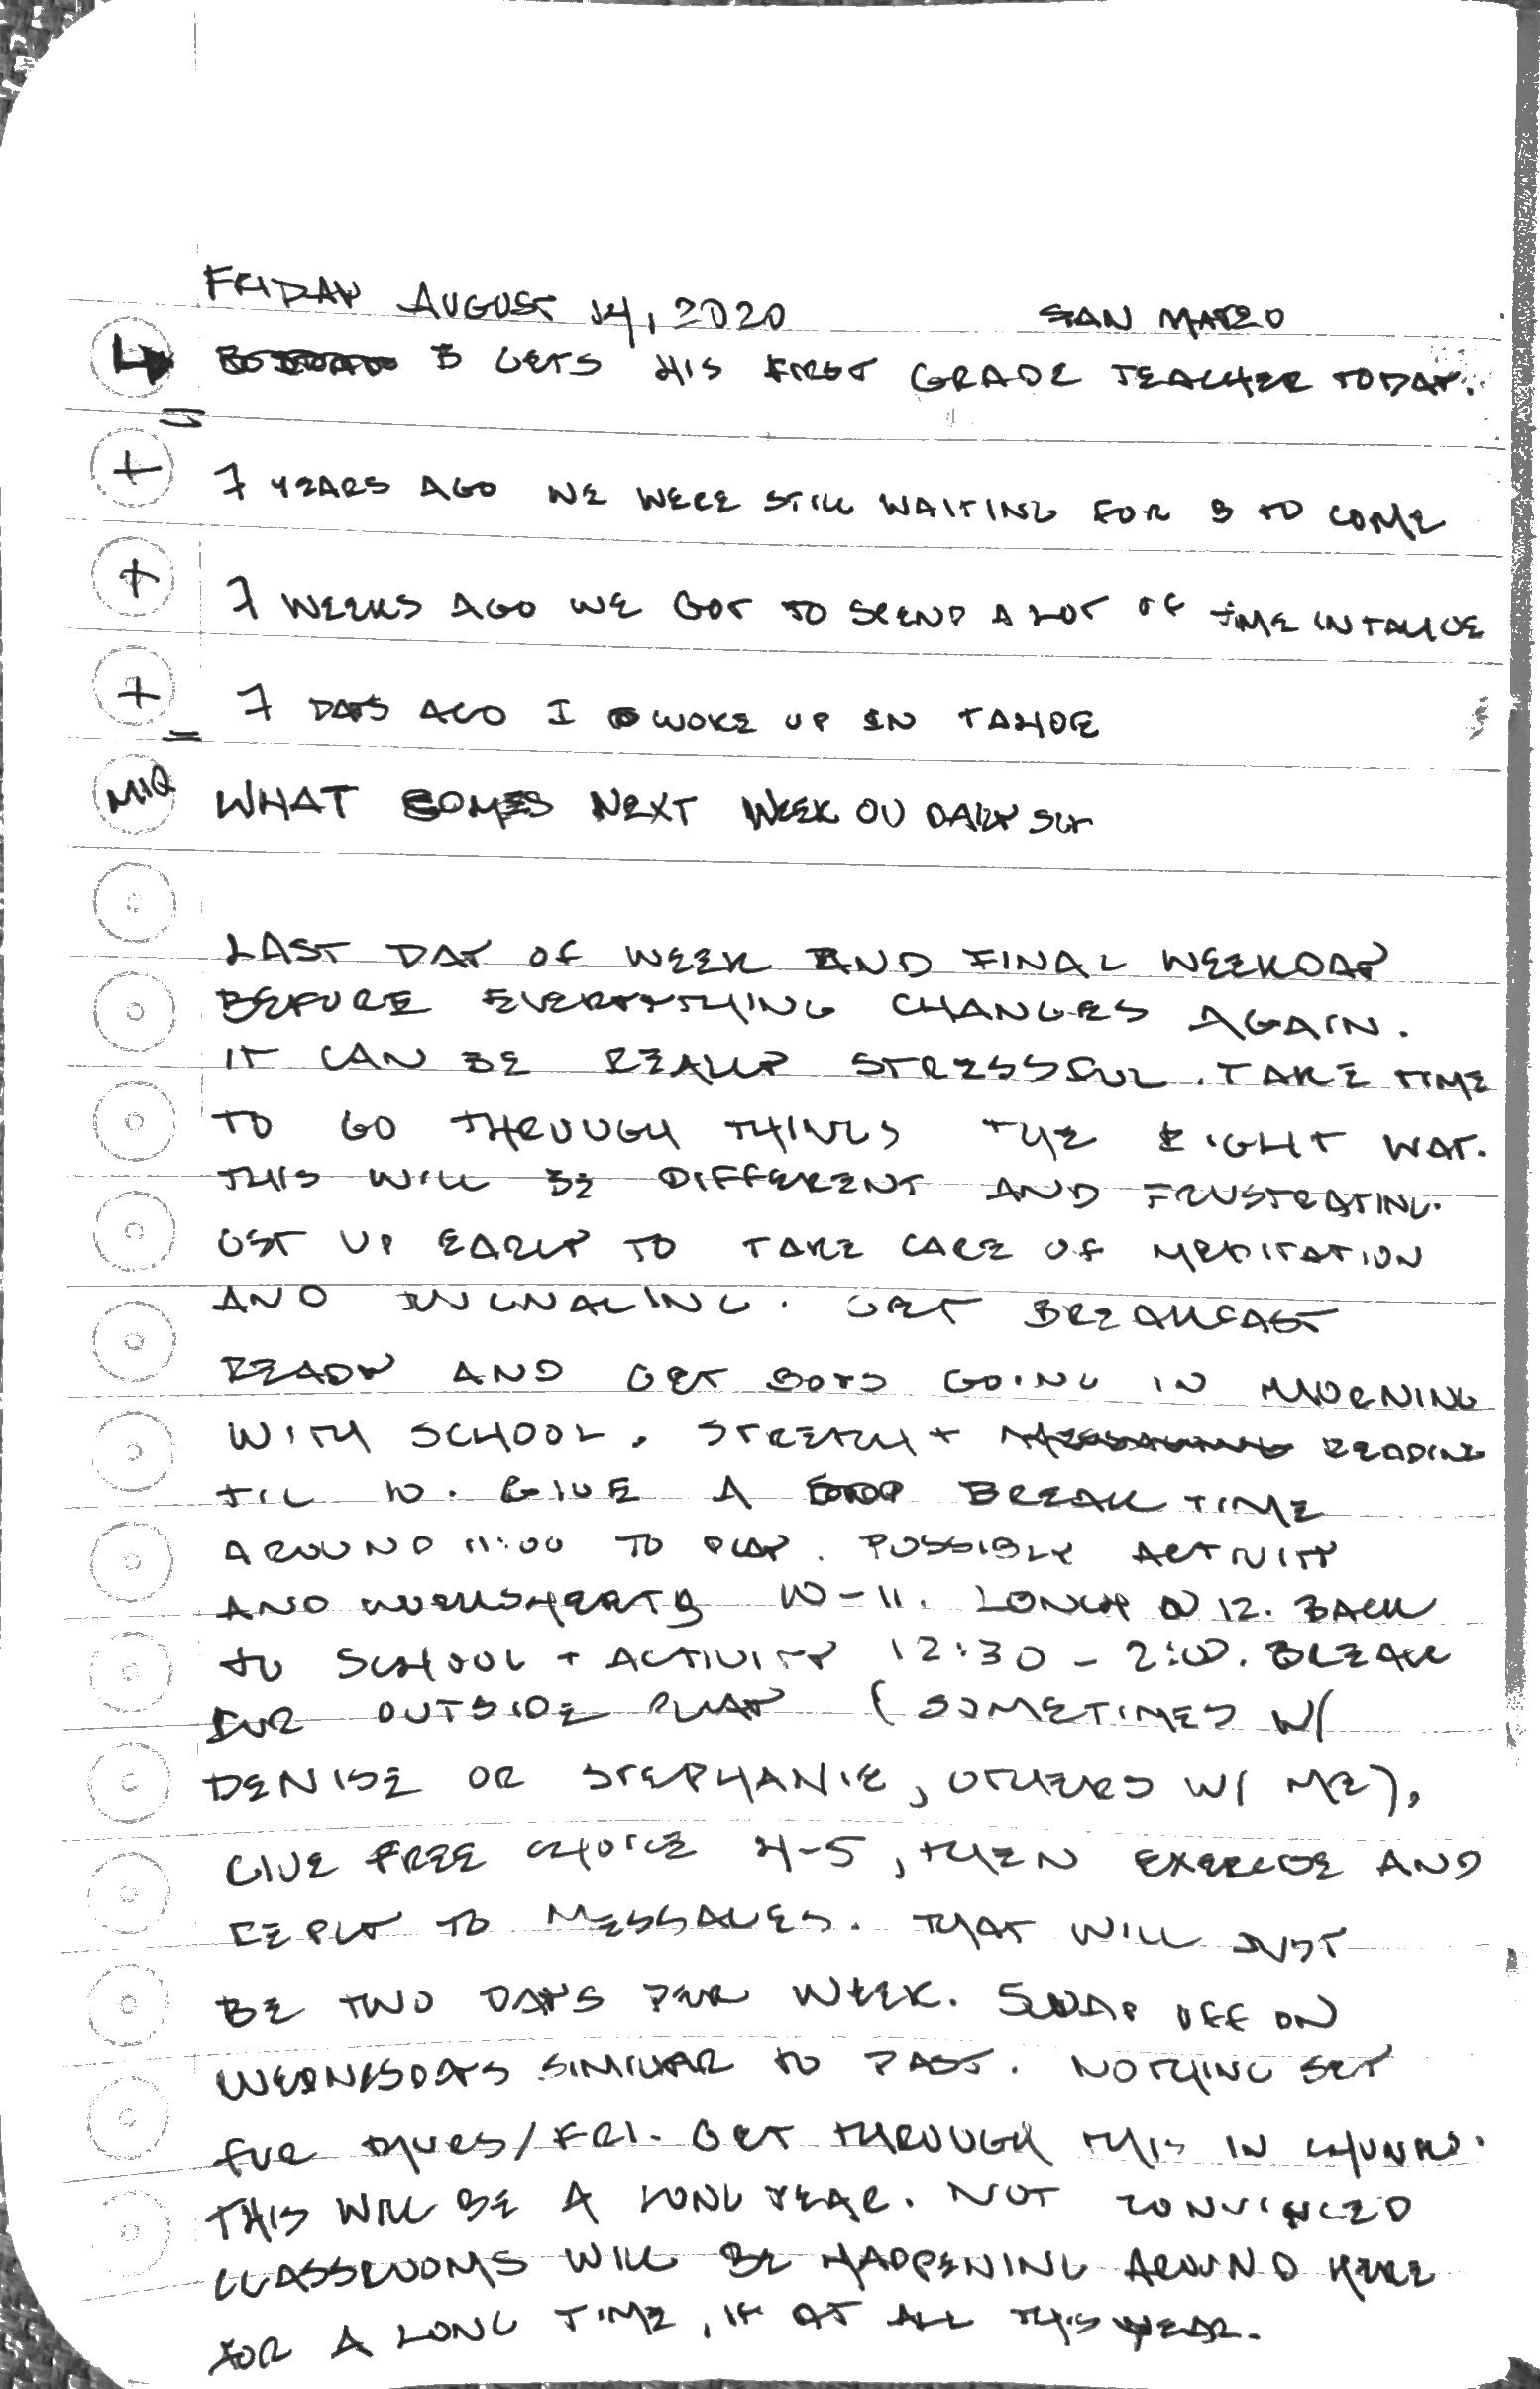 FRIDAY AUGUST 14, 2020 SAN MATEO
↳ B GETS HIS FIRST GRADE TEACHER TODAY.
=
+ 7 YEARS AGO WE WERE STILL WAITING FOR B TO COME
+ 7 WEEKS AGO WE GOT TO SPEND A LOT OF TIME IN TAHOE
+ 7 DAYS AGO I WOKE UP IN TAHOE
=
MIQ WHAT COMES NEXT WEEK ON DAILY
LAST DAY OF WEEK AND FINAL WEEKDAY
BEFORE EVERYTHING CHANGES AGAIN.
IT CAN BE REALLY STRESSFUL. TAKE TIME
TO GO THROUGH THINGS THE RIGHT WAY.
THIS WILL BE DIFFERENT AND FRUSTRATING.
GET UP EARLY TO TAKE CARE OF MEDITATION
AND JOURNALING. GET BREAKFAST
READY AND GET BOYS GOING IN MORNING
WITH SCHOOL. STRETCH + READING
TIL 10. GIVE A BREAK TIME
AROUND 11:00 TO PLAY. POSSIBLY ACTIVITY
AND WORKSHEETS 10-11. LUNCH @ 12. BACK
TO SCHOOL + ACTIVITY 12:30 - 2:00. BREAK
FOR OUTSIDE PLAY (SOMETIMES W/
DENISE OR STEPHANIE, OTHERS W/ ME).
GIVE FREE CHOICE 4-5, THEN EXERCISE AND
REPLY TO MESSAGES. THAT WILL JUST
BE TWO DAYS PER WEEK. SWAP OFF ON
WEDNESDAYS SIMILAR TO PAST. NOTHING SET
FOR THURS/FRI. GET THROUGH THIS IN CHUNKS.
THIS WILL BE A LONG YEAR. NOT CONVINCED
CLASSROOMS WILL BE HAPPENING AROUND HERE
FOR A LONG TIME, IF AT ALL THIS YEAR.